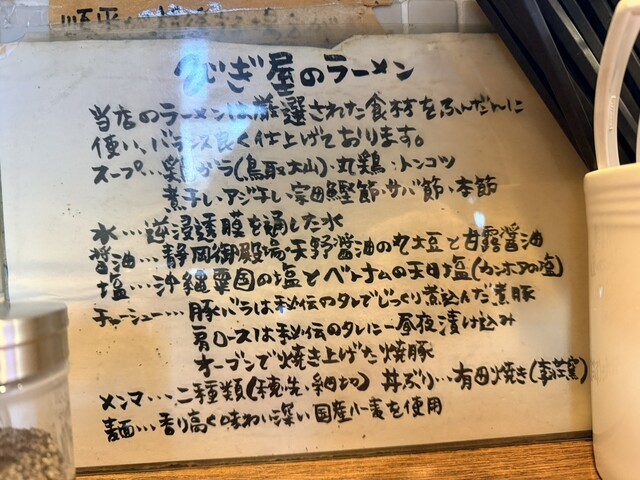 つじぎ屋のラーメン
当店のラーメンは厳選された食材をふんだんに
使い、バランス良く仕上げております。
スープ…鶏ガラ(鳥取大山)・丸鶏・トンコツ
煮干し・アジ干し・宗田鰹節・サバ節・本節
水…逆浸透膜を通した水
醤油…静岡御殿場・天野醤油の丸大豆と甘露醤油
塩…沖縄粟国の塩とベトナムの天日塩(カンホアの塩)
チャーシュー…豚バラは秘伝のタレでじっくり煮込んだ煮豚
肩ロースは秘伝のタレに一昼夜漬け込み
オーブンで焼き上げた焼豚
メンマ…二種類(穂先・細切) 丼ぶり…有田焼き(窯)
麺…香り高く味わい深い国産小麦を使用